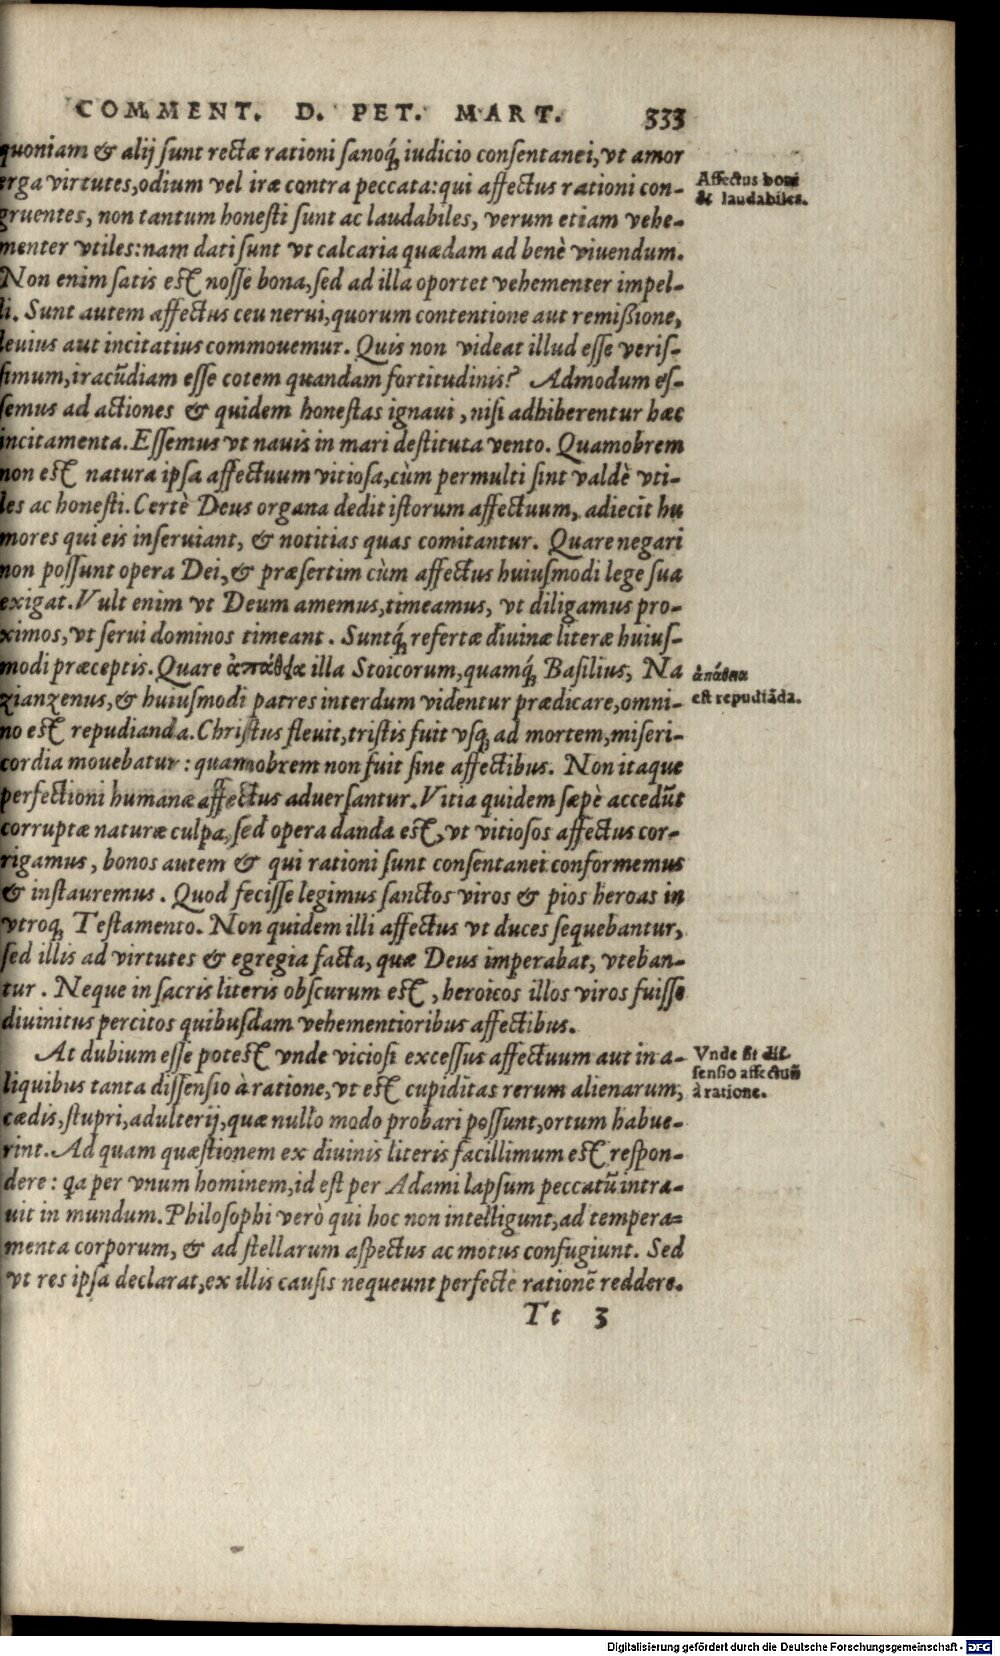 COMMENT. D. PET. MART. 333
quoniam & alij sunt rectæ rationi sanoq́; iudicio consentanei, vt amor
erga virtutes, odium vel iræ contra peccata: qui affectus rationi con-
gruentes, non tantum honesti sunt ac laudabiles, verum etiam vehe-
menter vtiles: nam dati sunt vt calcaria quædam ad benè viuendum.
Non enim satis est nosse bona, sed ad illa oportet vehementer impel-
li. Sunt autem affectus ceu nerui, quorum contentione aut remißione,
leuius aut incitatius commouemur. Quis non videat illud esse veris-
simum, iracũdiam esse cotem quandam fortitudinis? Admodum es-
semus ad actiones & quidem honestas ignaui, nisi adhiberentur hæc
incitamenta. Essemus vt nauis in mari destituta vento. Quamobrem
non est natura ipsa affectuum vitiosa, cùm permulti sint valdè vti-
les ac honesti. Certè Deus organa dedit istorum affectuum, adiecit hu
mores qui eis inseruiant, & notitias quas comitantur. Quare negari
non possunt opera Dei, & præsertim cùm affectus huiusmodi lege sua
exigat. Vult enim vt Deum amemus, timeamus, vt diligamus pro-
ximos, vt serui dominos timeant. Suntq́; refertæ diuinæ literæ huius-
modi præceptis. Quare ἀπάθεια illa Stoicorum, quamq́; Basilius, Na
zianzenus, & huiusmodi patres interdum videntur prædicare, omni-
no est repudianda. Christus fleuit, tristis fuit vsq; ad mortem, miseri-
cordia mouebatur: quamobrem non fuit sine affectibus. Non itaque
perfectioni humanæ affectus aduersantur. Vitia quidem sæpè accedũt
corruptæ naturæ culpa, sed opera danda est, vt vitiosos affectus cor-
rigamus, bonos autem & qui rationi sunt consentanei conformemus
& instauremus. Quod fecisse legimus sanctos viros & pios heroas in
vtroq; Testamento. Non quidem illi affectus vt duces sequebantur,
sed illis ad virtutes & egregia facta, quæ Deus imperabat, vteban-
tur. Neque in sacris literis obscurum est, heroicos illos viros fuisse
diuinitus percitos quibusdam vehementioribus affectibus.
At dubium esse potest vnde viciosi excessus affectuum aut in a-
liquibus tanta dissensio à ratione, vt est cupiditas rerum alienarum,
cædis, stupri, adulterij, quæ nullo modo probari possunt, ortum habue-
rint. Ad quam quæstionem ex diuinis literis facillimum est respon-
dere: qa per vnum hominem, id est per Adami lapsum peccatũ intra-
uit in mundum. Philosophi verò qui hoc non intelligunt, ad tempera-
menta corporum, & ad stellarum aspectus ac motus confugiunt. Sed
vt res ipsa declarat, ex illis causis nequeunt perfectè rationẽ reddere.
Tt 3
Affectus boni
& laudabiles.
ἀπάθεια
est repudiãda.
Vnde sit dis
sensio affectuũ
à ratione.
Digitalisierung gefördert durch die Deutsche Forschungsgemeinschaft - DFG